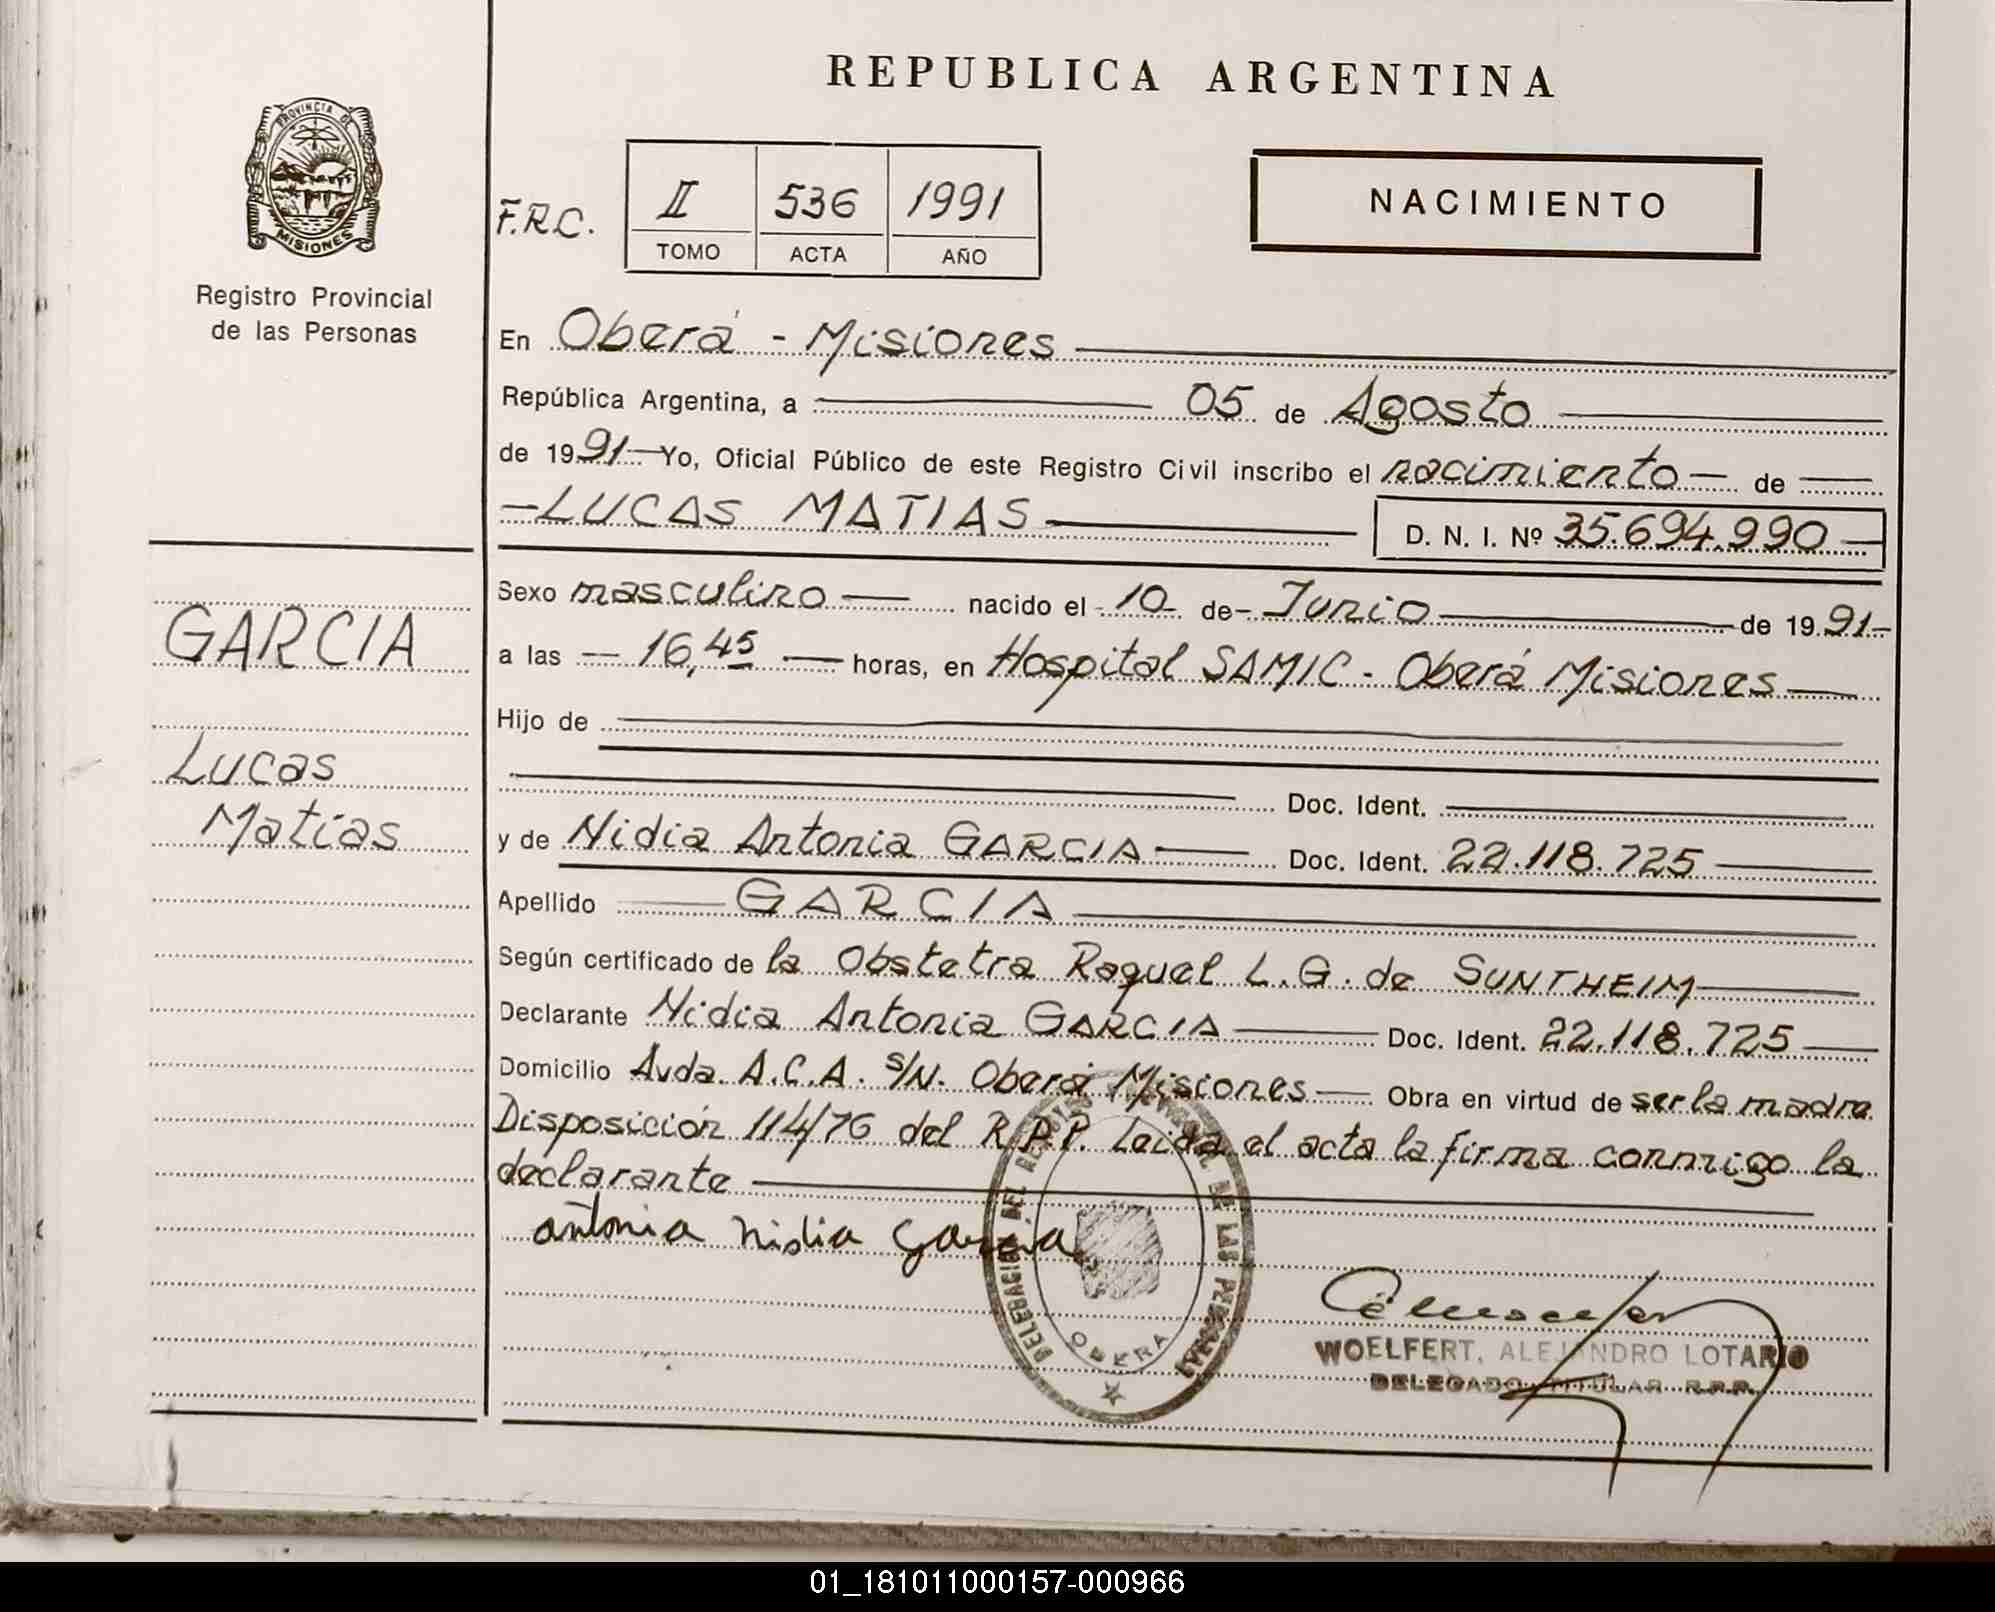 REPUBLICA ARGENTINA
PROVINCIA DE
MISIONES
Registro Provincial
de las Personas
F.R.C.
II 536 1991
TOMO ACTA AÑO
NACIMIENTO
En Oberá - Misiones
República Argentina, a 05 de Agosto
de 1991 Yo, Oficial Público de este Registro Civil inscribo el nacimiento de
LUCAS MATIAS D. N. I. Nº 35.694.990
GARCIA
Lucas
Matias
Sexo masculino nacido el 10 de Junio de 1991
a las 16,45 horas, en Hospital SAMIC - Oberá Misiones
Hijo de
Doc. Ident.
y de Nidia Antonia GARCIA Doc. Ident. 22.118.725
Apellido GARCIA
Según certificado de la Obstetra Raquel L.G. de SUNTHEIM
Declarante Nidia Antonia GARCIA Doc. Ident. 22.118.725
Domicilio Avda. A.C.A. s/N. Oberá Misiones Obra en virtud de ser la madre
Disposición 114/76 del R.P.P. Leida el acta la firma conmigo la
declarante
antonia nidia Garcia
DELEGACION DEL REGISTRO PROVINCIAL DE LAS PERSONAS
OBERA
WOELFERT, ALEJANDRO LOTARIO
DELEGADO TITULAR R.P.P.
01_181011000157-000966